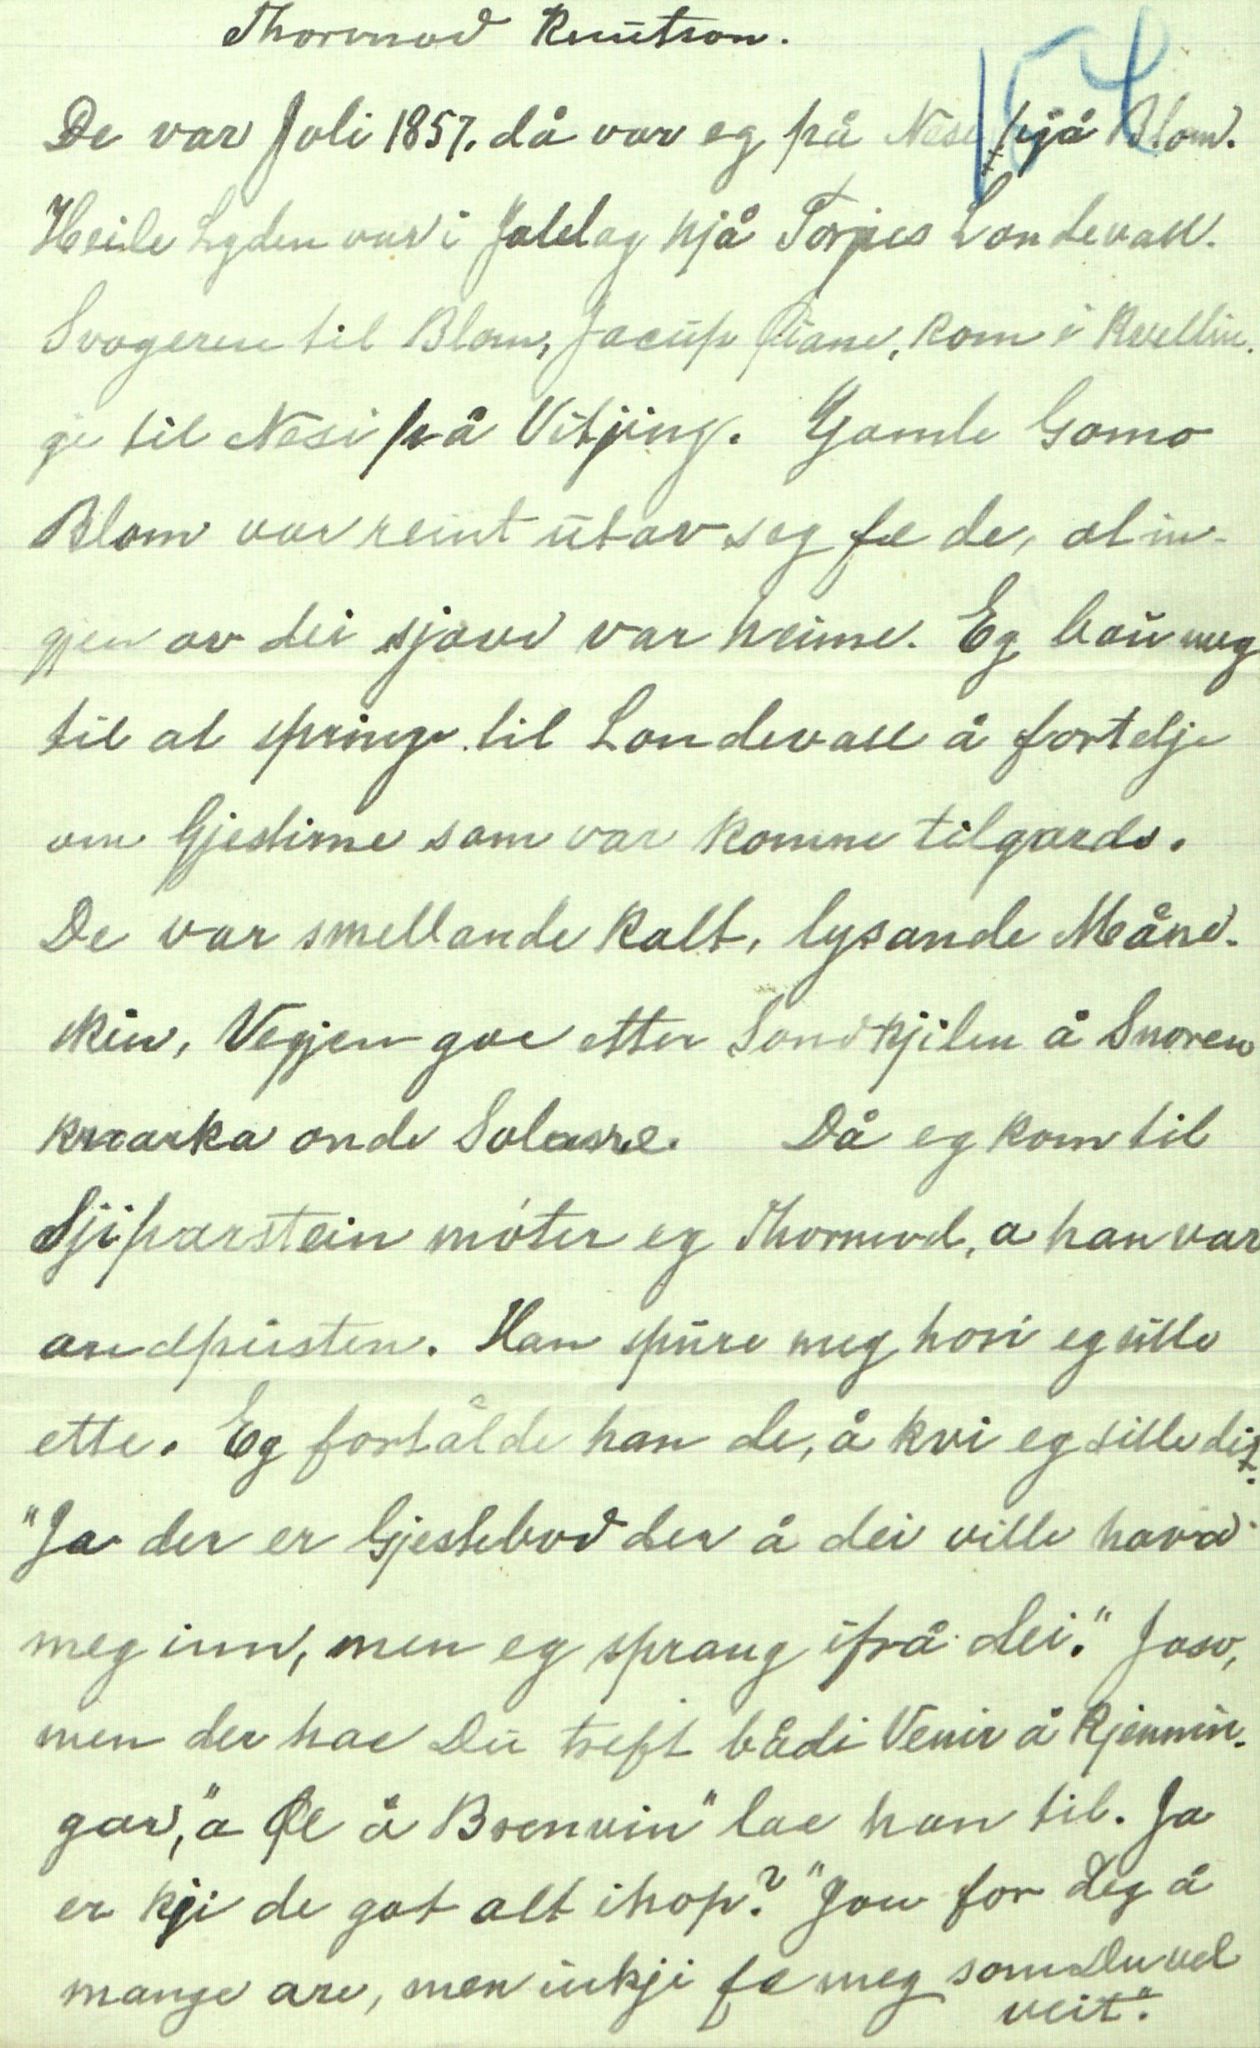 Thormod Knutson.
154
De var Joli 1857. då var eg på Nesi hjå Blom.
Heile Lyden var i Jolelag hjå Torjus Londevall.
Svogeren til Blom, Jacup Øiane, kom i Kvellin-
gje til Nesi på Vitjing. Gamle Gomo
Blom var reint utav seg fæ de, at in-
gjen av dei sjøve var heime. Eg bau meg
til at springe til Londevall å fortelje
om Gjestirne som var komne tilgards.
De var smellande kalt, lysande Måne-
skin, Vegjen gae etter Sondkjilen å Snoren
knarka onde Solanne. Då eg kom til
Sjiparstein møter eg Thormod, a han var
andpusten. Han spure meg hori eg sille
ette. Eg fortålde han de, å kvi eg sille dit.
"Ja der er Gjestebod der å dei ville hava
meg inn, men eg sprang ifrå dei." Jaso,
men der hae Du treft bådi Venir å Kjennin-
gar, "a Øl å Brenvin" lae han til. Ja
er kji de got alt ihop? "Jou for deg å
mange are, men inkji fæ meg som Du vel
veit".